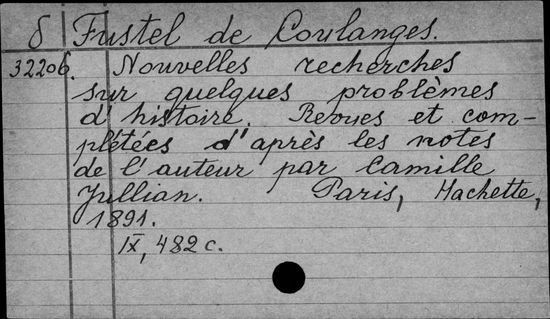 δ Fustel de Coulanges.
32206. Nouvelles recherches
sur quelques problèmes
d'histoire. Revues et com-
plétées d'après les notes
de l'auteur par Camille
Jullian. Paris, Hachette,
1891.
IX, 482 c.